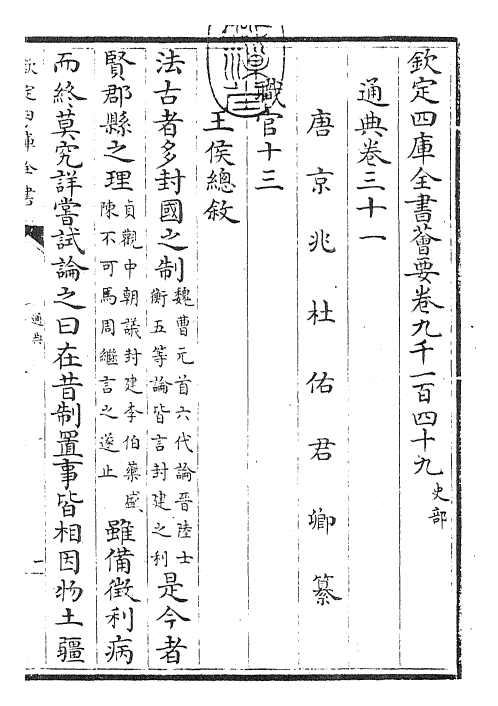 欽定四庫全書薈要卷九千一百四十九史部
通典卷三十一
唐京兆杜佑君卿纂
職官十三
王侯總敘
法古者多封國之制魏曹元首六代論晉陸士衡五等論皆言封建之利是今者
賢郡縣之理貞觀中朝議封建李伯藥盛陳不可馬周繼言之遂止雖備徵利病
而終莫究詳嘗試論之曰在昔制置事皆相因物土疆
欽定四庫全書
通典